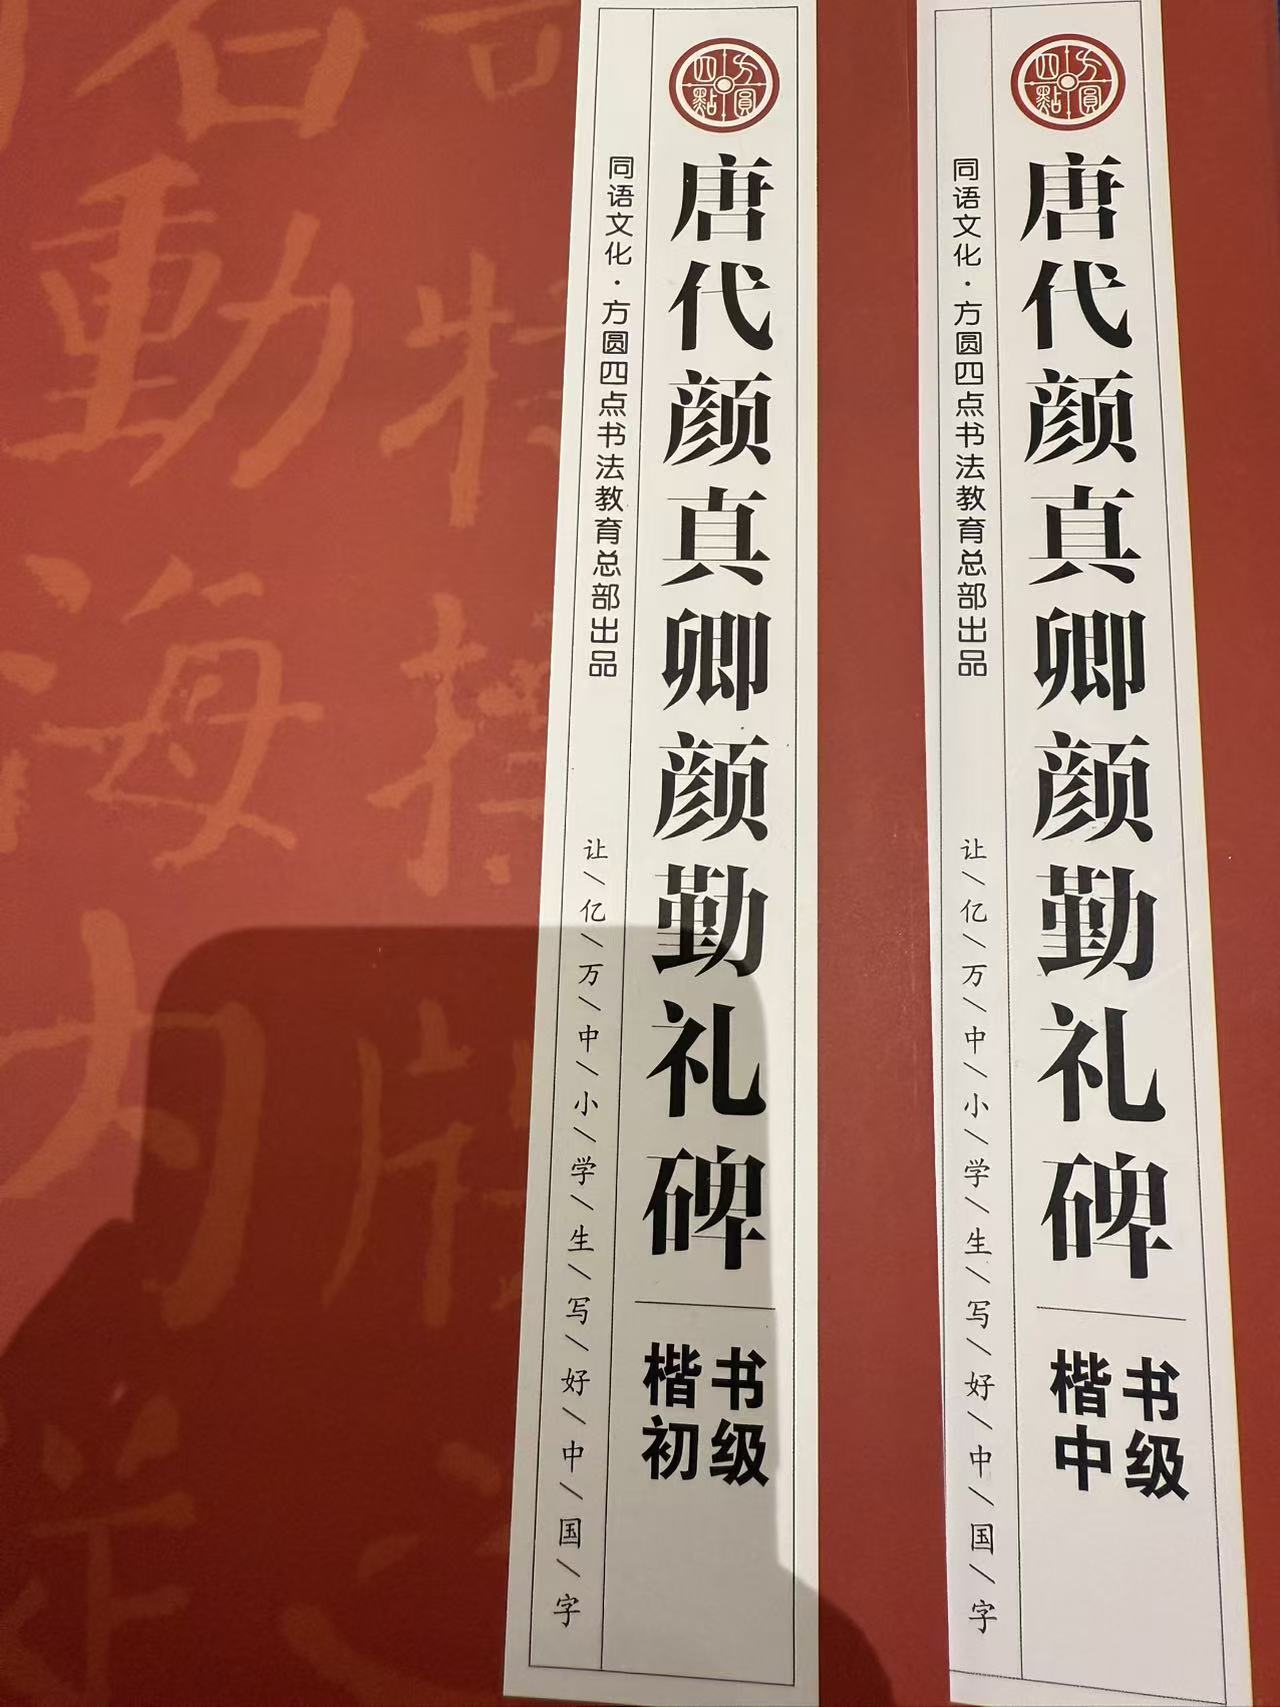 方圓四點
唐代颜真卿颜勤礼碑
同语文化·方圆四点书法教育总部出品
让/亿/万/中/小/学/生/写/好/中/国/字
楷书
初级
方圓四點
唐代颜真卿颜勤礼碑
同语文化·方圆四点书法教育总部出品
让/亿/万/中/小/学/生/写/好/中/国/字
楷书
中级
動
特
海
内